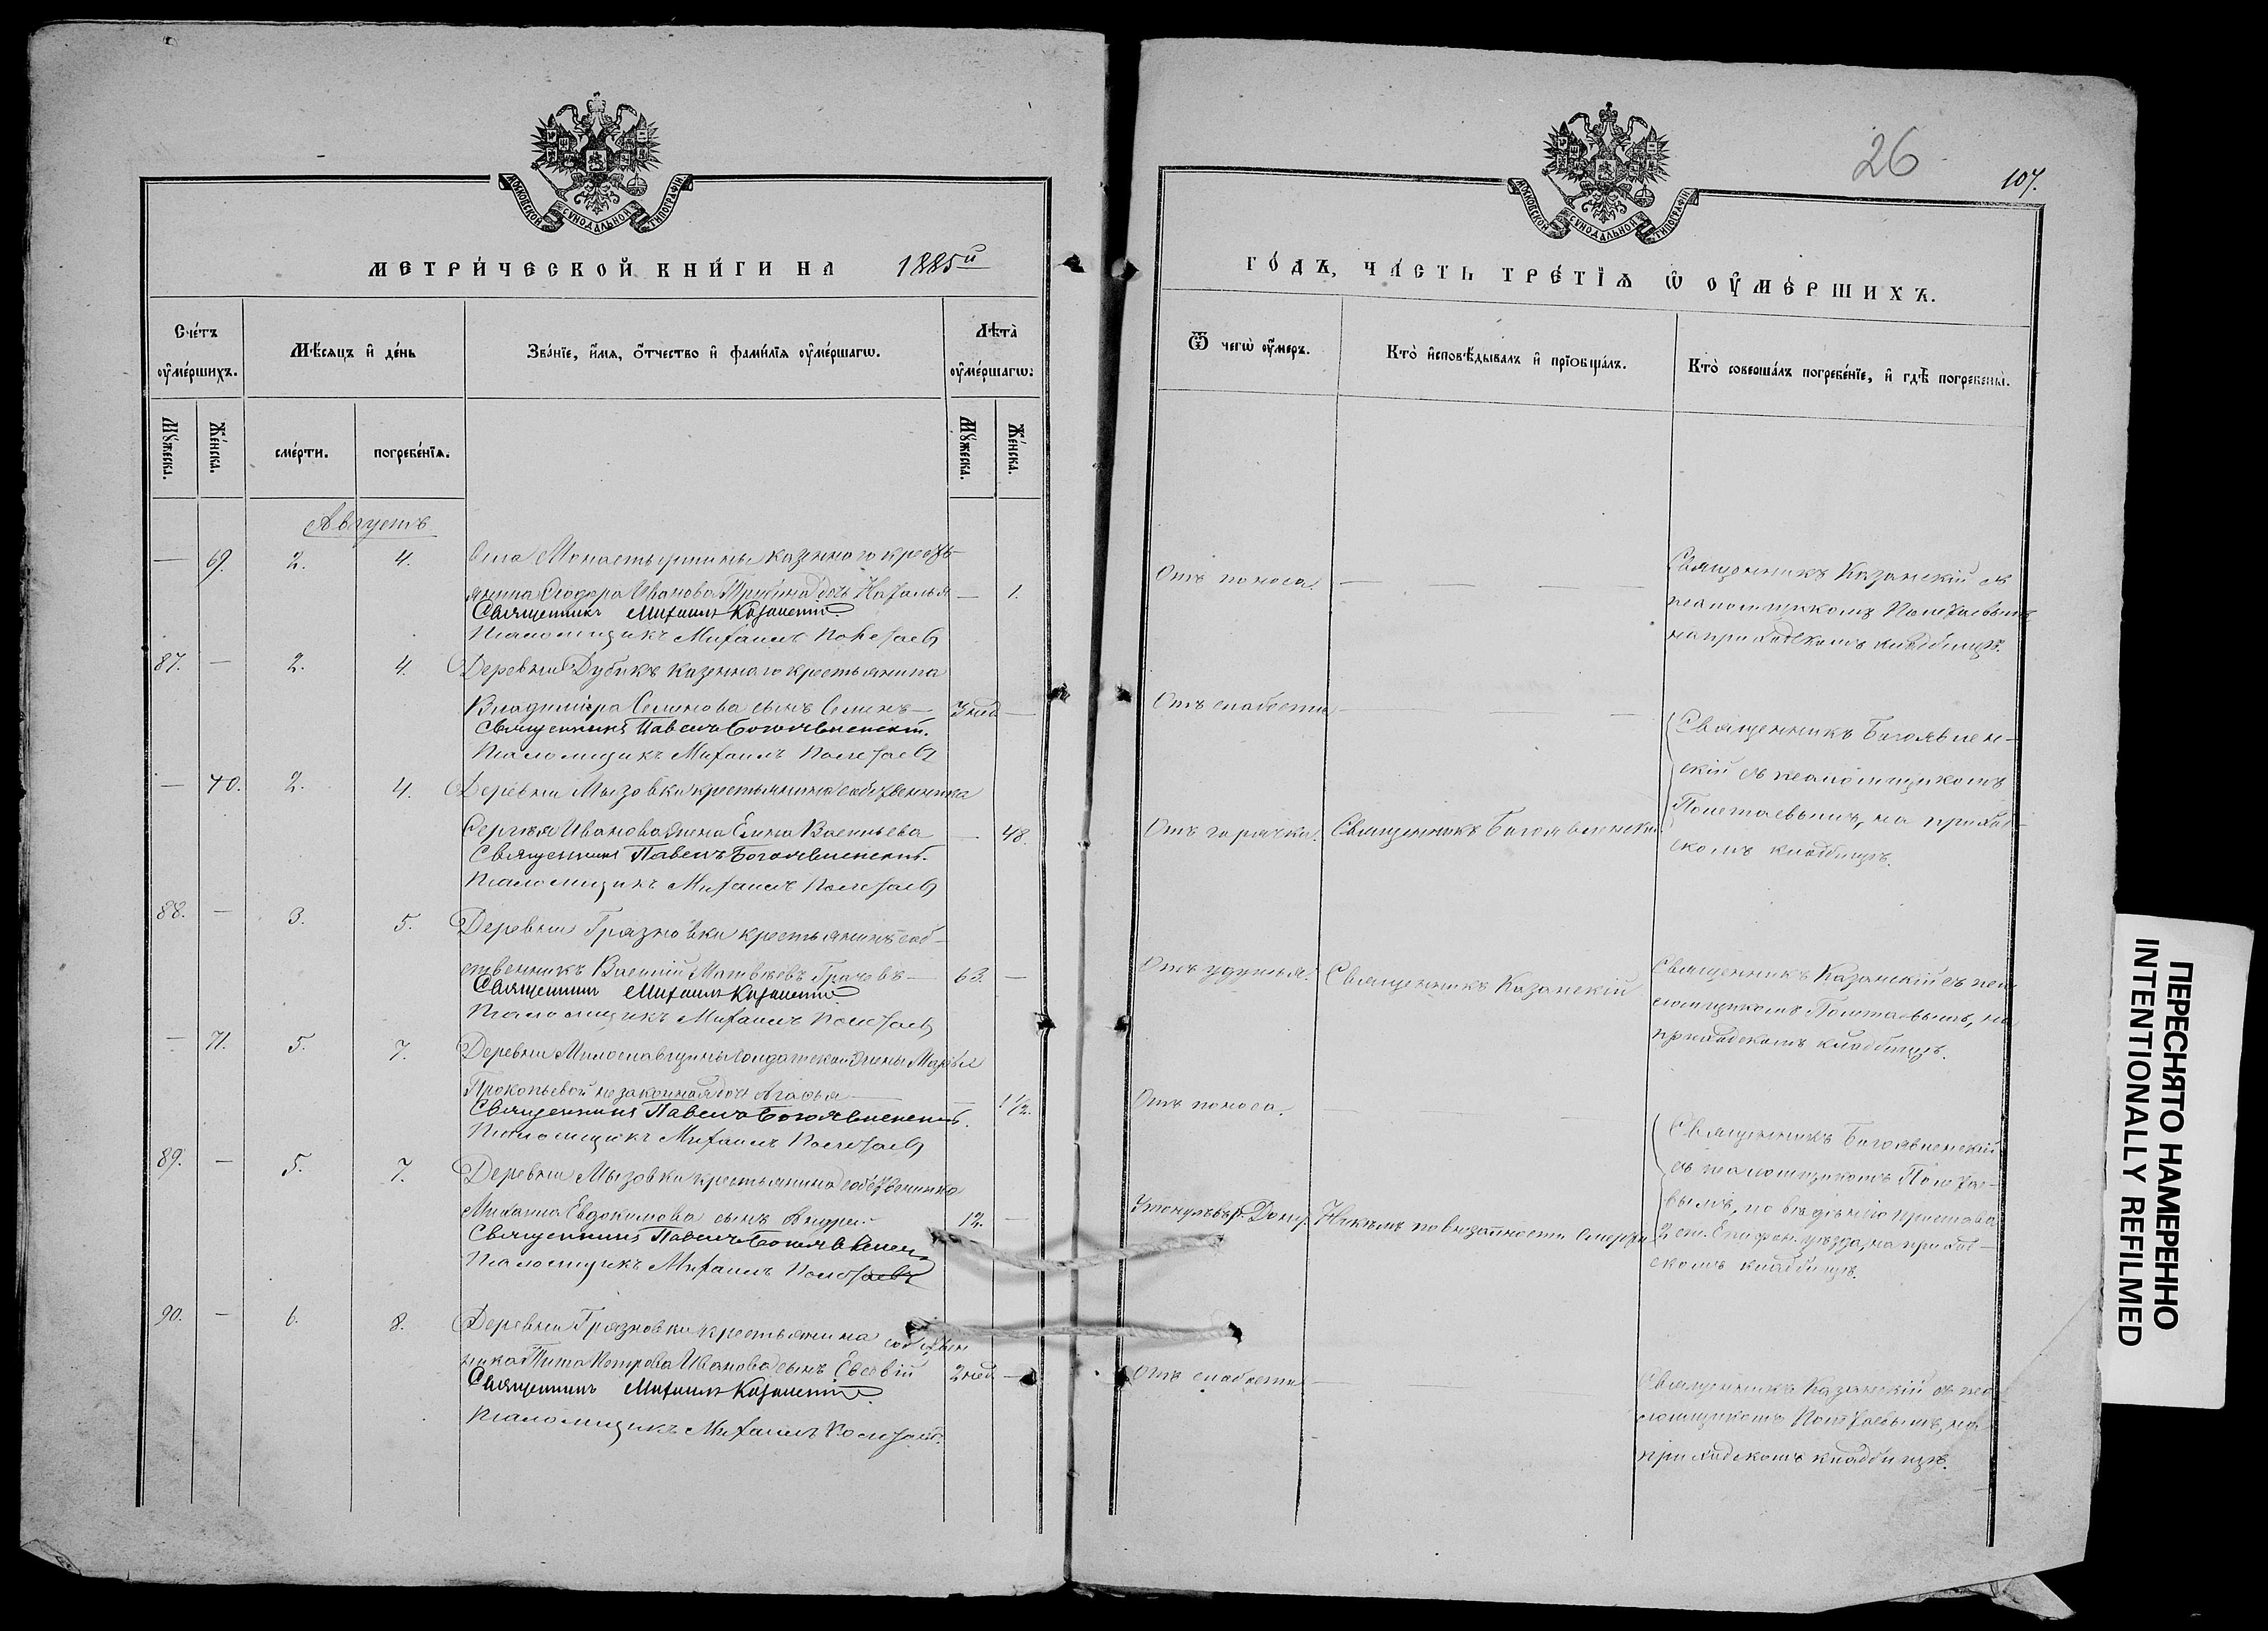 МОСКОВСКОЙ СѴНОДАЛЬНОЙ ТИПОГРАФІИ
МЕТРИ́ЧЕСКОЙ КНИ́ГИ НА 1885й
Сче́тъ ᲂу҆ме́ршихъ.
Мѣ́сяцъ и҆ де́нь
Зва́нїе, и҆́мя, ѻ҆́тчество и҆ фами́лїя ᲂу҆ме́ршагѡ.
Лѣта̀ ᲂу҆ме́ршагѡ:
Мꙋ́жеска.
Же́нска.
сме́рти.
погребе́нїѧ.
Мꙋ́жеска.
Же́нска.
Августъ
— 69. 2. 4. Села Монастырщины казеннаго кресть-
янина Сидора Иванова Трубина дочь Наталья — 1.
Священникъ Михаилъ Казанскій
Псаломщикъ Михаилъ Полетаевъ
87. — 2. 4. Деревни Дубикъ казеннаго крестьянина
Владиміра Семенова сынъ Семенъ — 3 нед —
Священникъ Павелъ Богоявленскій.
Псаломщикъ Михаилъ Полетаевъ
— 70. 2. 4. Деревни Мызовки крестьянина собственника
Сергѣя Иванова жена Елена Васильева — 48.
Священникъ Павелъ Богоявленскій.
Псаломщикъ Михаилъ Полетаевъ
88. — 3. 5. Деревни Грязновки крестьянинъ соб-
ственникъ Василій Матвѣевъ Грачевъ — 63. —
Священникъ Михаилъ Казанскій
Псаломщикъ Михаилъ Полетаевъ
— 71. 5. 7. Деревни Милославщины солдатской жены Марьи
Прокопьевой незаконная дочь Агафья — 1 1/2.
Священникъ Павелъ Богоявленскій.
Псаломщикъ Михаилъ Полетаевъ
89. — 5. 7. Деревни Мызовки крестьянина собственника
Михаила Евдокимова сынъ Андрей — 12. —
Священникъ Павелъ Богоявленск
Псаломщикъ Михаилъ Полетаевъ
90. — 6. 8. Деревни Грязновки крестьянина собствен
ника Тита Петрова Иванова сынъ Евсевій 2 нед —
Священникъ Михаилъ Казанскій
Псаломщикъ Михаилъ Полетаевъ.
26
107.
МОСКОВСКОЙ СѴНОДАЛЬНОЙ ТИПОГРАФІИ
ГО́ДЪ, ЧА́СТЬ ТРЕ́ТЇѦ Ѡ҆ ОУ҆МЕ́РШИХЪ.
Ѿ чегѡ̀ ᲂу҆́меръ.
Кто̀ и҆сповѣ́дывалъ и҆ прїѡбща́лъ.
Кто̀ соверша́лъ погребе́нїе, и҆ гдѣ̀ погребены̀.
Отъ поноса. — — —
Священникъ Казанскій съ
псаломщикомъ Полетаевымъ
на приходскомъ кладбищѣ.
Отъ слабости — —
Священникъ Богоявлен-
скій съ псаломщикомъ
Полетаевымъ, на приход-
скомъ кладбищѣ.
Отъ горячки. Священникъ Богоявленскій.
Отъ удушья. Священникъ Казанскій
Священникъ Казанскій съ пса-
ломщикомъ Полетаевымъ, на
приходскомъ кладбищѣ.
Отъ поноса.
Священникъ Богоявленскій
съ псаломщикомъ Полетае-
вымъ, по вѣдѣнію пристава
2 ст. Епифан. уѣзда, на приход-
скомъ кладбищѣ.
Утонулъ въ р. Дону. Никѣмъ по внезапности смерти
Отъ слабости — —
Священникъ Казанскій съ пса-
ломщикомъ Полетаевымъ, на
приходскомъ кладбищѣ.
ПЕРЕСНЯТО НАМЕРЕННО
INTENTIONALLY REFILMED